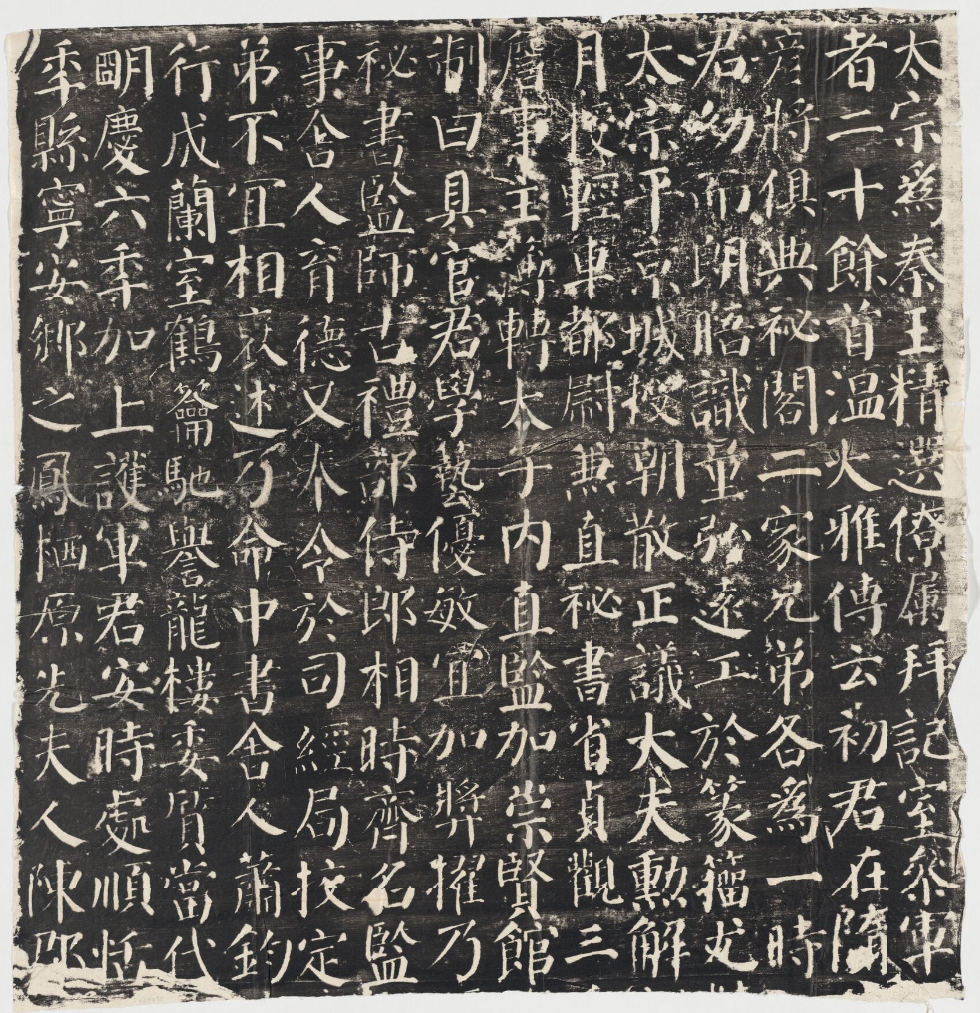 太宗爲秦王精選僚属拜記室叅軍
者二十餘首温大雅傳云初君在隋
彦將俱典祕閣二家兄弟各爲一時
君幼而朗晤識量弘遠工於篆籀尤
太宗平京城授朝散正議大夫勳解
月授輕車都尉兼直祕書省貞觀三
詹事主簿轉太子内直監加崇賢館
制曰具官君學藝優敏宜加奬擢乃
祕書監師古禮部侍郎相時齊名監
事舍人育德又奉令於司經局挍定
弟不宜相褒述乃命中書舍人蕭鈞
行成蘭室鶴籥馳譽龍樓委質當代
明慶六年加上護軍君安時處順恬
年縣寧安鄉之鳳栖原先夫人陳郡